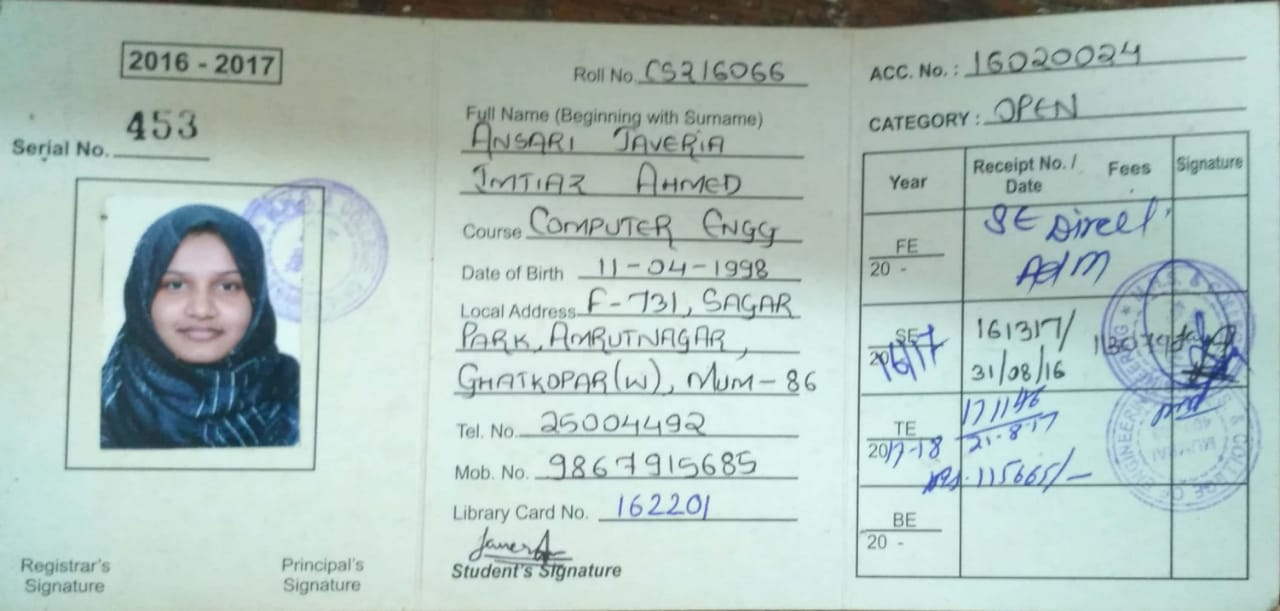 2016 - 2017
Serial No. 453
Registrar's Signature
Principal's Signature
Roll No. CS216066
Full Name (Beginning with Surname)
ANSARI JAVERIA
IMTIAZ AHMED
Course COMPUTER ENGG
Date of Birth 11-04-1998
Local Address F-731, SAGAR
PARK, AMRUTNAGAR,
GHATKOPAR(W), MUM-86
Tel. No. 25004492
Mob. No. 9867915685
Library Card No. 162201
Student's Signature
ACC. No. : 16020024
CATEGORY : OPEN
Year Receipt No. / Date Fees Signature
FE 20 - SE Direct
Adm
SE 2016/17 161317/
31/08/16
TE 2017-18 171146
21-8-17
115665/-
BE 20 -